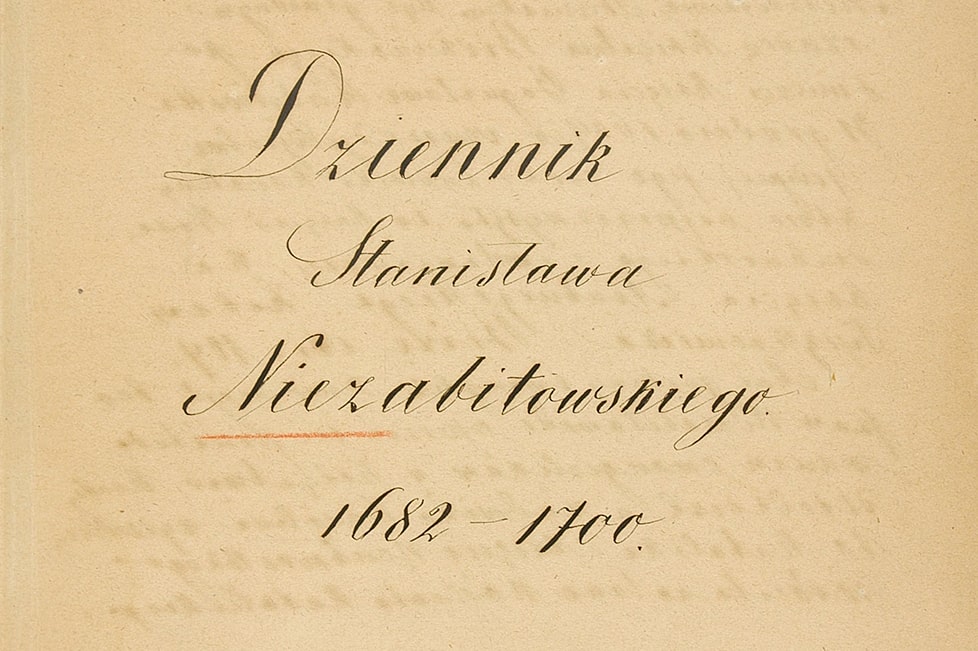 Dziennik
Stanisława
Niezabitowskiego.
1682 – 1700.